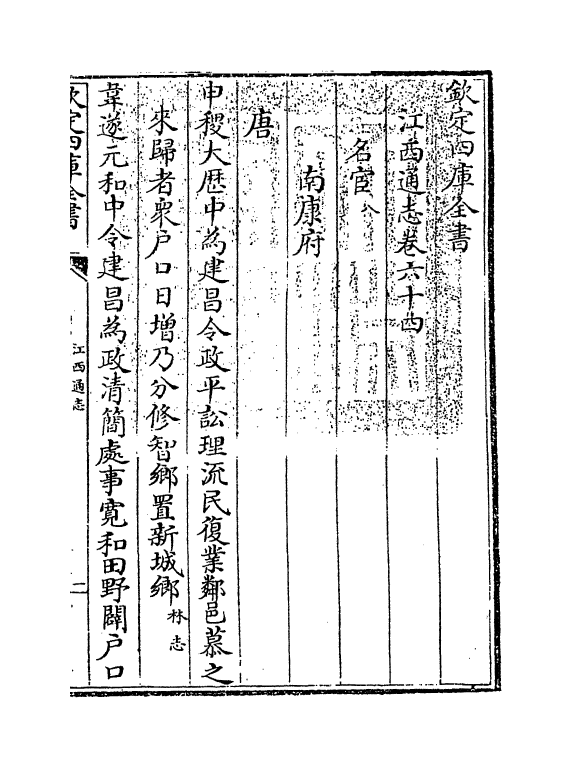 欽定四庫全書
江西通志卷六十四
名宦八
南康府
唐
申稷大歴中為建昌令政平訟理流民復業鄰邑慕之
來歸者衆户口日增乃分修智鄉置新城鄉林志
韋遂元和中令建昌為政清簡處事寛和田野闢户口
欽定四庫全書
江西通志